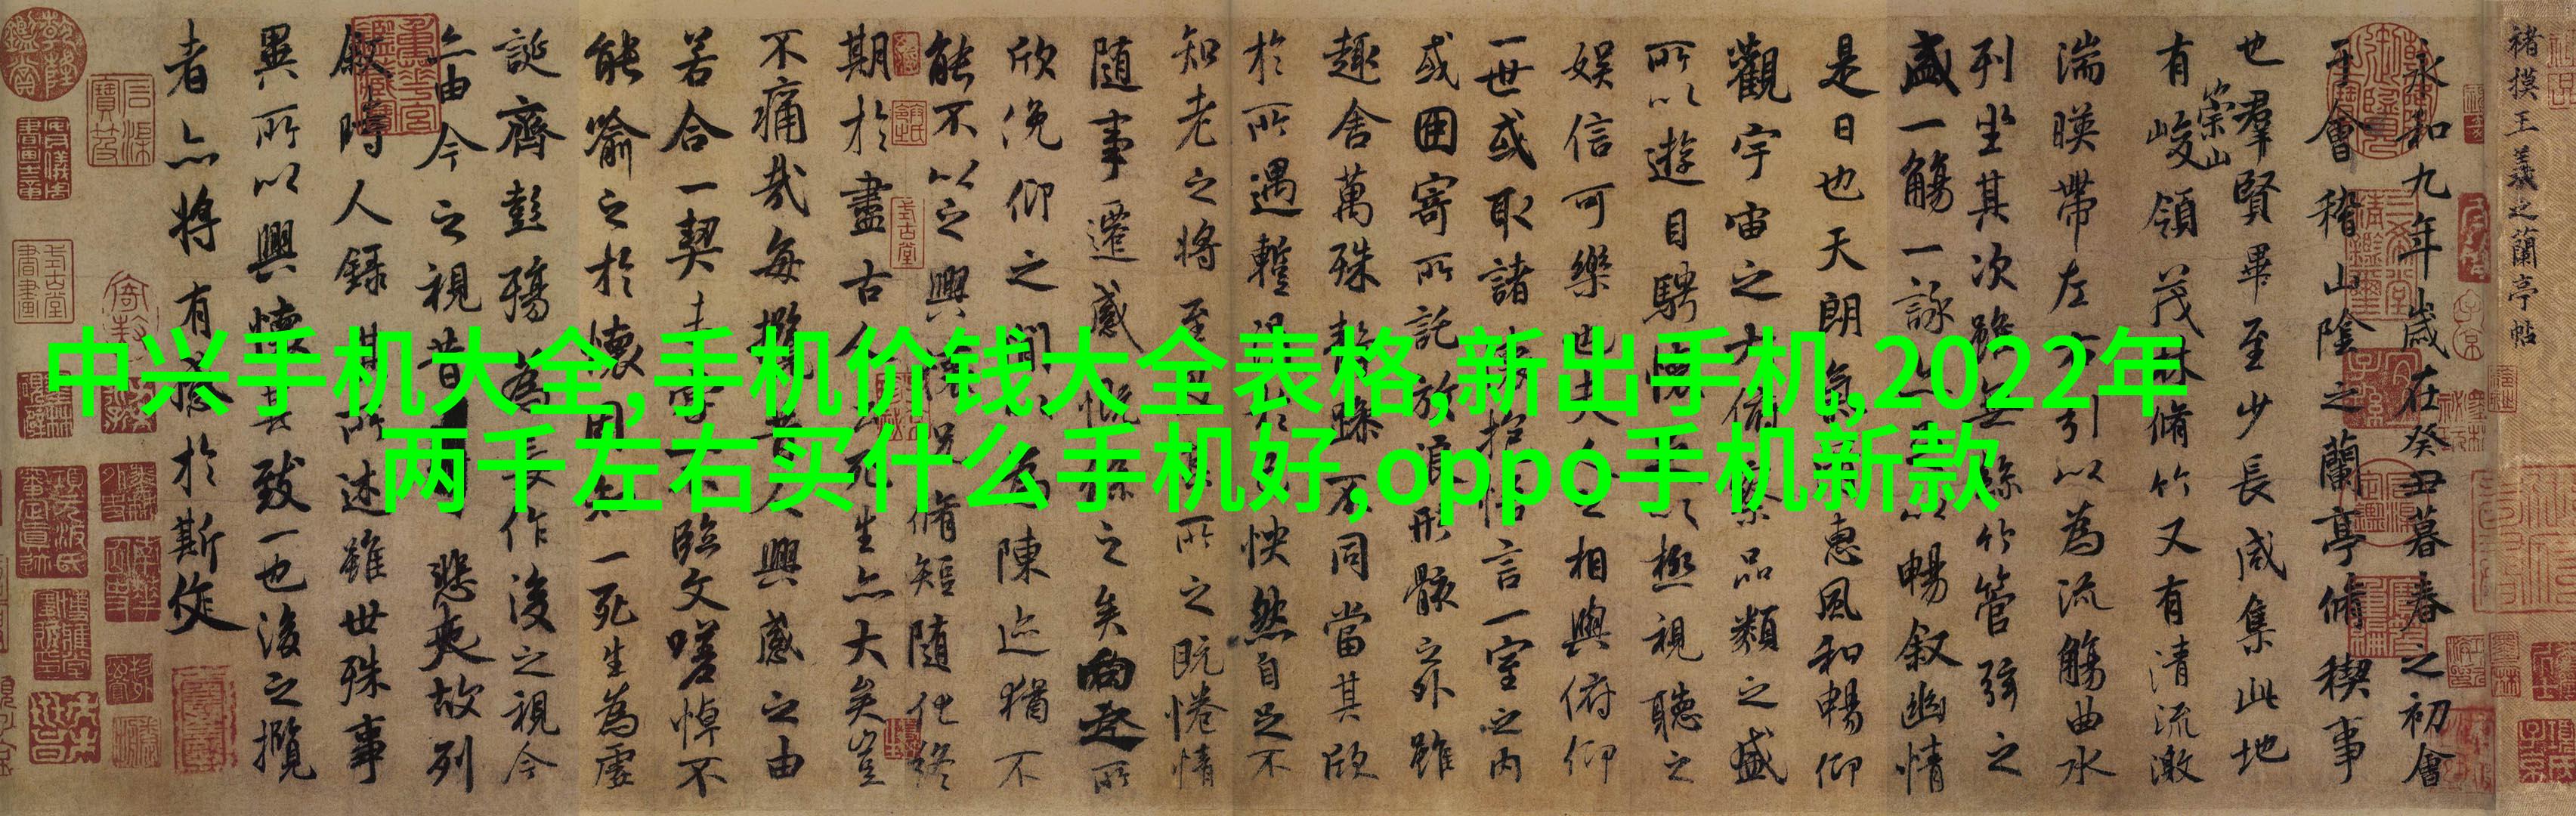 中兴手机大全,手机价钱大全表格,新出手机,2022年
两千左右买什么手机好,oppo手机新款
褚摸王羲之蘭亭帖
永和九年歲在癸丑暮春之初會
于會稽山陰之蘭亭脩稧事
也羣賢畢至少長咸集此地
有崇山峻領茂林脩竹又有清流激
湍暎帶左右引以為流觴曲水
列坐其次雖無絲竹管弦之
盛一觴一詠亦足以暢叙幽情
是日也天朗氣清惠風和暢仰
觀宇宙之大俯察品類之盛
所以遊目騁懷足以極視聽之
娛信可樂也夫人之相與俯仰
一世或取諸懷抱悟言一室之內
或因寄所託放浪形骸之外雖
趣舍萬殊靜躁不同當其欣
於所遇暫得於己怏然自足不
知老之將至及其所之既惓情
隨事遷感慨係之矣向之所
欣俛仰之間以為陳迹猶不
能不以之興懷況脩短隨化終
期於盡古人云死生亦大矣豈
不痛哉每攬昔人興感之由
若合一契未嘗不臨文嗟悼不
能喻之於懷固知一死生為虛
誕齊彭殤為妄作後之視今
亦由今之視昔悲夫故列
叙時人錄其所述雖世殊事
異所以興懷其致一也後之攬
者亦將有感於斯文